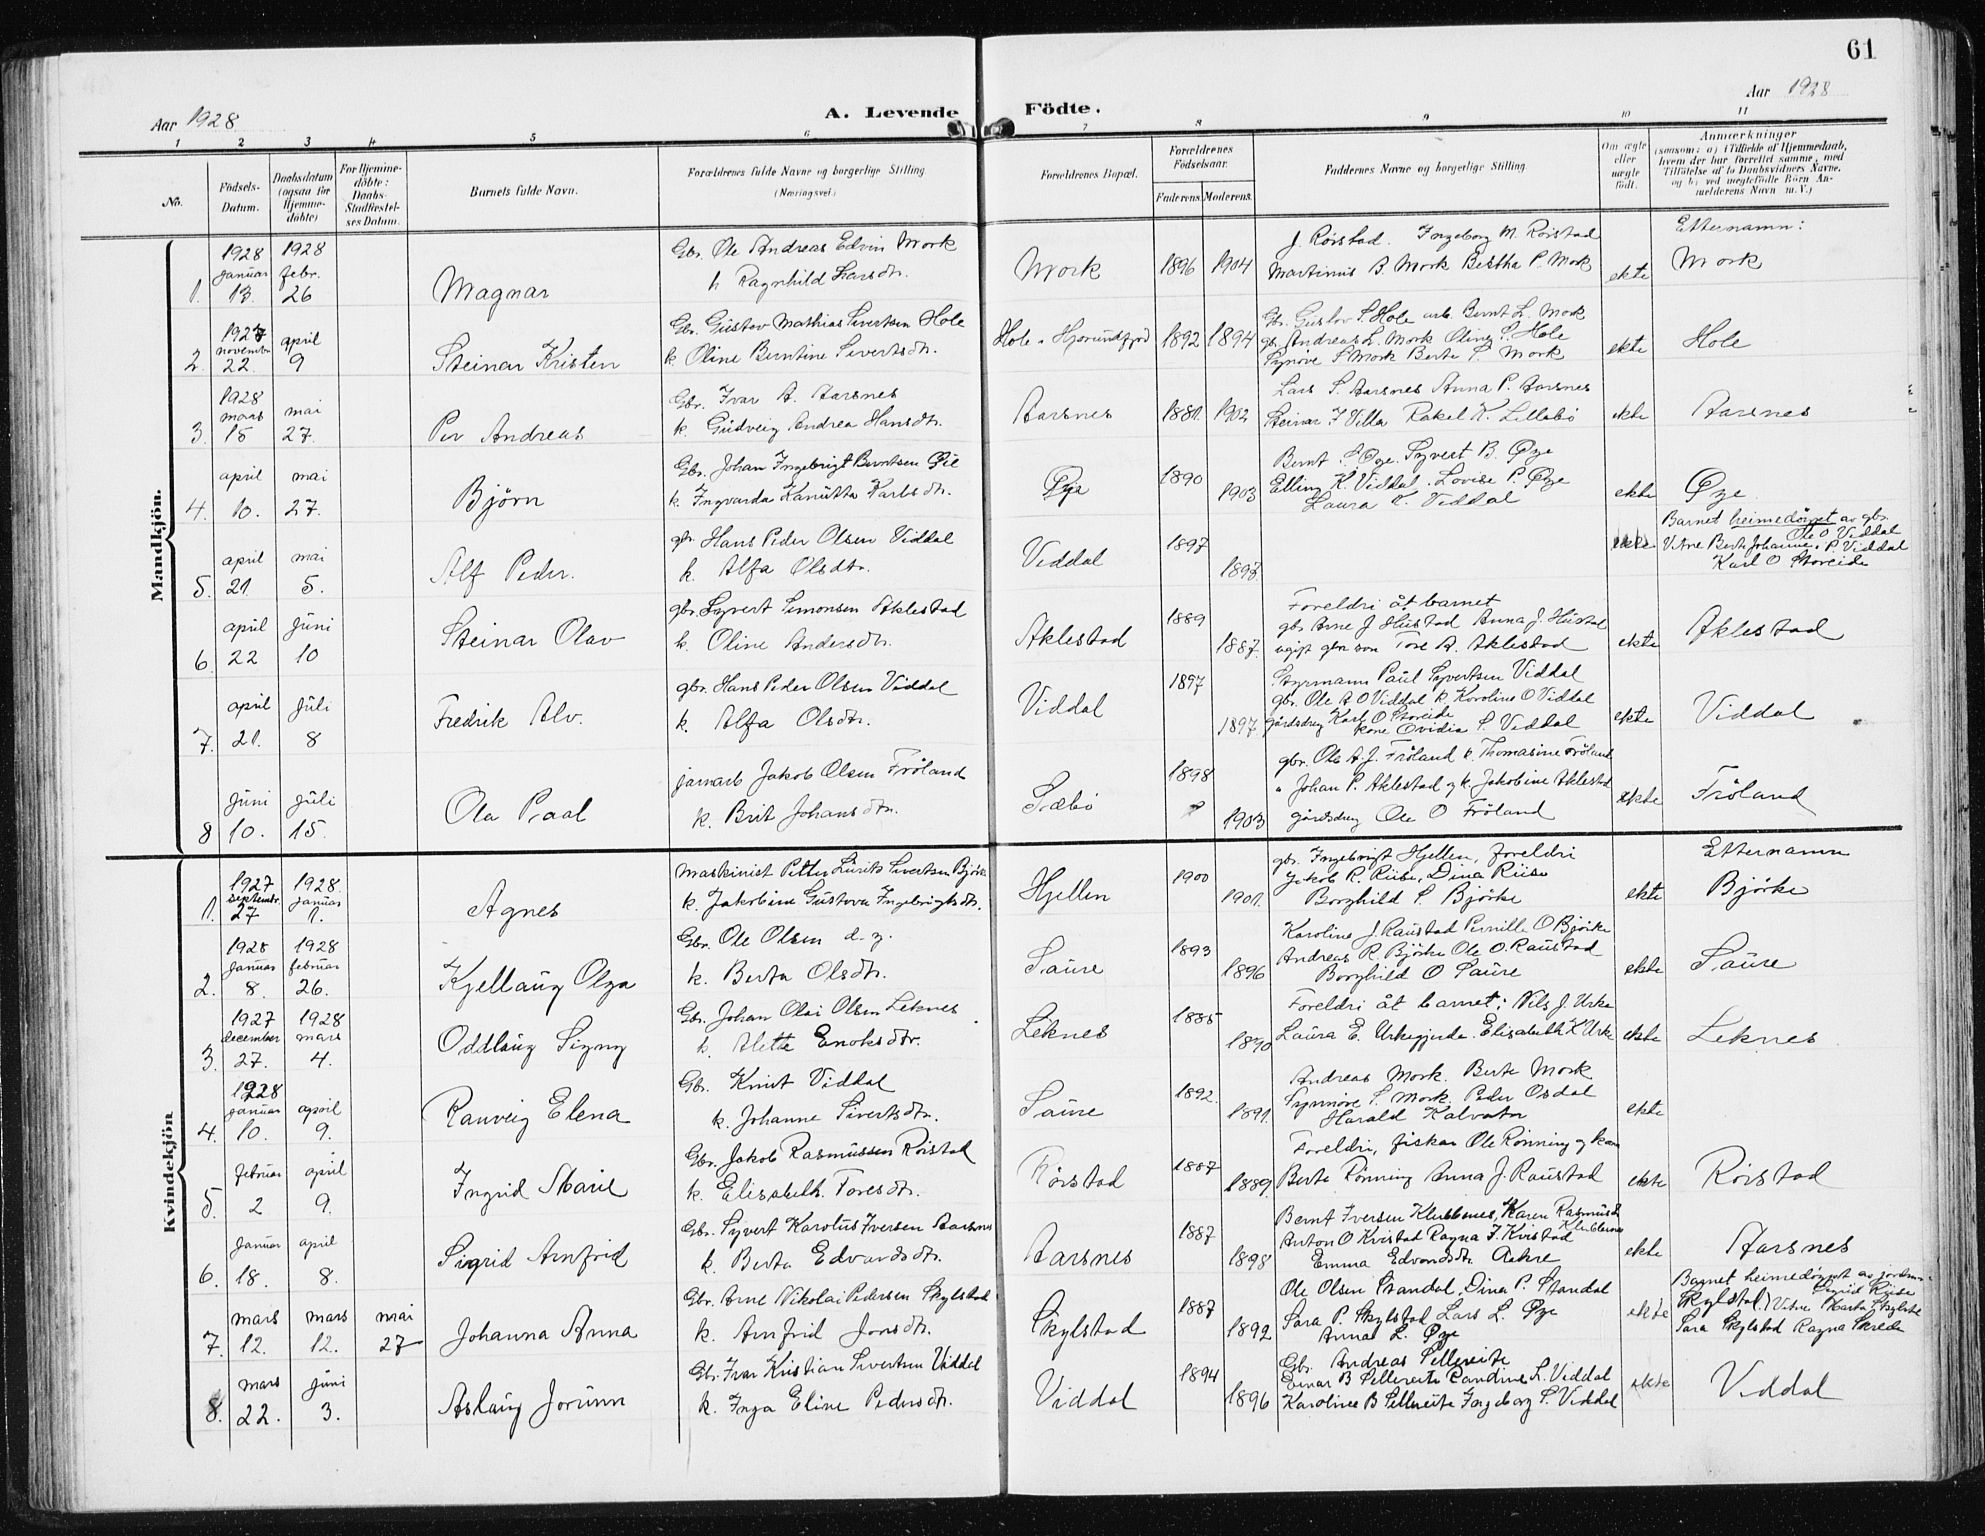 61
Aar 1928
A. Levende Födte.
Aar 1928
1 2 3 4 5 6 7 8 9 10 11
No.
Födsels-Datum.
Daabsdatum (ogsaa for Hjemme-döbte)
For Hjemme-döbte: Daabs-Stadfæstel-ses Datum.
Barnets fulde Navn.
Forældrenes fulde Navne og borgerlige Stilling (Næringsvei)
Forældrenes Bopæl.
Forældrenes Födselsaar.
Faderens. Moderens.
Faddernes Navne og borgerlige Stilling
Om ægte eller uægte födt.
Anmærkninger
(saasom: a) i Tilfælde af Hjemmedaab, hvem der har forrettet samme, med Tilföielse af to Daabsvidners Navne, og b) ved uægtefödte Börn An-melderens Navn m. V.)
Mandkjön.
1. 1928 januar 13. 1928 febr. 26 Magnar
Gbr. Ole Andreas Edvin Mork
k Ragnhild Larsdtr.
Mork 1896 1904
J. Rörstad. Ingeborg M. Rörstad
Martinus B. Mork Bertha P. Mork
ekte
Etternamn:
Mork
2. 1927 november 22. april 9 Steinar Kristen
Gbr. Gustav Mathias Sivertsen Hole
k. Oline Berntine Sivertsdtr.
Hole i Hjørundfjord 1892 1894
Gbr. Gustav S. Hole arb. Bernt L. Mork
gbr. Andreas L. Mork Oline S. Hole
Synöve S Mork Berte S. Mork
ekte Hole
3. 1928 mars 15 mai 27. Per Andreas
Gbr. Ivar A. Aarsnes
k. Gudveig Andrea Hansdtr.
Aarsnes 1881. 1902
Lars S. Aarsnes Anna P. Aarsnes
Steinar I Villa Rakel K. Lillebö
ekte Aarsnes
4. april 10. mai 27. Björn
Gbr. Johan Ingebrigt Berntsen Øie
k. Ingvarda Kanutta Karlsdtr.
Øye 1890 1903
Bernt S Øye. Syvert B. Øye
Elling K. Viddal. Lovise P. Øye
Laura K. Viddal
ekte Øye
5. april 21. mai 5. Alf Peder.
gbr. Hans Peder Olsen Viddal
k. Alfa Olsdtr.
Viddal 1897 1897
ekte
Barnet heimedöypt av gbr.
Ole O Viddal
Vitne Berte Johanne P. Viddal
Karl O Storeide
6. april 22 juni 10 Steinar Olav
gbr. Syvert Simonsen Aklestad
k. Oline Andersdtr.
Aklestad 1889 1887.
Foreldri åt barnet
gbr Arne J Hustad Anna J. Hustad
ugift gbr son Tore A. Aklestad
ekte Aklestad
7. april 21. juli 8 Fredrik Alv.
gbr. Hans Peder Olsen Viddal
k. Alfa Olsdtr.
Viddal 1897 1897
Styrmann Paul Syvertsen Viddal
gbr. Ole A O Viddal k. Karoline O Viddal
gårdsdreng Karl O Storeide
kone Ovidia S. Viddal
ekte Viddal
8 juni 10. juli 15. Ola Paal
jarnarb Jakob Olsen Fröland
k. Brit Johansdtr.
Sæbö 1898 1903
gbr. Ole A. J. Fröland k. Thomasine Fröland
" Johan P. Aklestad og k. Jakobine Aklestad
gårdsdreng Ole O Fröland
ekte Fröland
Kvindekjön
1. 1927 septembr. 27 1928. januar 1. Agnes
maskinist Petter Laurits Sivertsen Björke
k. Jakobine Gustava Ingebrigtsdtr.
Hjellen 1900 1901.
gbr. Ingebrigt Hjellen, foreldri
Jakob R. Riise, Dina Riise
Borghild S. Björke
ekte
Etternamn
Björke
2. 1928 januar 8. 1928 februar 26. Kjellaug Olga
Gbr. Ole Olsen d. y.
k. Berta Olsdtr.
Saure 1893 1896
Karoline J. Raustad Pernille O Björke
Andreas R. Björke Ole O. Raustad
Borghild O Saure
ekte Saure
3. 1927 december 27. 1928 mars 4. Oddlaug Signy
Gbr. Johan Olai Olsen Leknes
k. Alette Enoksdtr.
Leknes 1885 1890
Foreldri åt barnet; Nils J. Urke
Laura E. Urkegjerde. Elisabeth K Urke
ekte Leknes
4. 1928 januar 10. april 9. Ranveig Elena
Gbr. Knut Viddal
k. Johanne Sivertsdtr.
Saure 1892. 1891.
Andreas Mork. Berte Mork
Synnöve S. Mork. Peder Osdal
Harald Kalvatn
ekte
5. februar 2 april 9. Ingrid Marie
Gbr. Jakob Rasmussen Rörstad
k. Elisabeth. Toresdtr.
Rörstad 1887 1889.
Foreldri, fiskar Ole Rönning og kona
Berte Rönning Anna J. Raustad
ekte Rörstad
6. januar 18. april 8. Sigrid Arnfrid
Gbr. Syvert Karolus Iversen Aarsnes
k. Berta Edvardsdtr.
Aarsnes 1887 1898
Bernt Iversen Klubbenes, Karen Rasmusd
Klubbenes
Anton O Kvistad Ragna I. Kvistad
Emma Edvardsdtr Aakre
ekte Aarsnes
7. mars 12. mars 12. mai 27 Johanna Anna
Gbr. Arne Nikolai Pedersen Skylstad
k. Arnfrid Jonsdtr.
Skylstad 1887 1892
Ole Olsen Standal, Dina P. Standal
Sara P. Skylstad Lars L. Øye
Anna L. Øye
ekte
Barnet heimedöypt av jordm.
Sigrid Riise
(Skylstad.) Vitne Marta Skylstad
Sara Skylstad Ragna Skrede
8. mars 22. juni 3. Aslaug Jorunn
Gbr. Ivar Kristian Sivertsen Viddal
k. Inga Eline Pedersdtr.
Viddal 1894 1896
Gbr. Andreas Sellereite
Einar B Sellereite Randine L. Viddal
Karoline B Sellereite Ingeborg S. Viddal
ekte Viddal